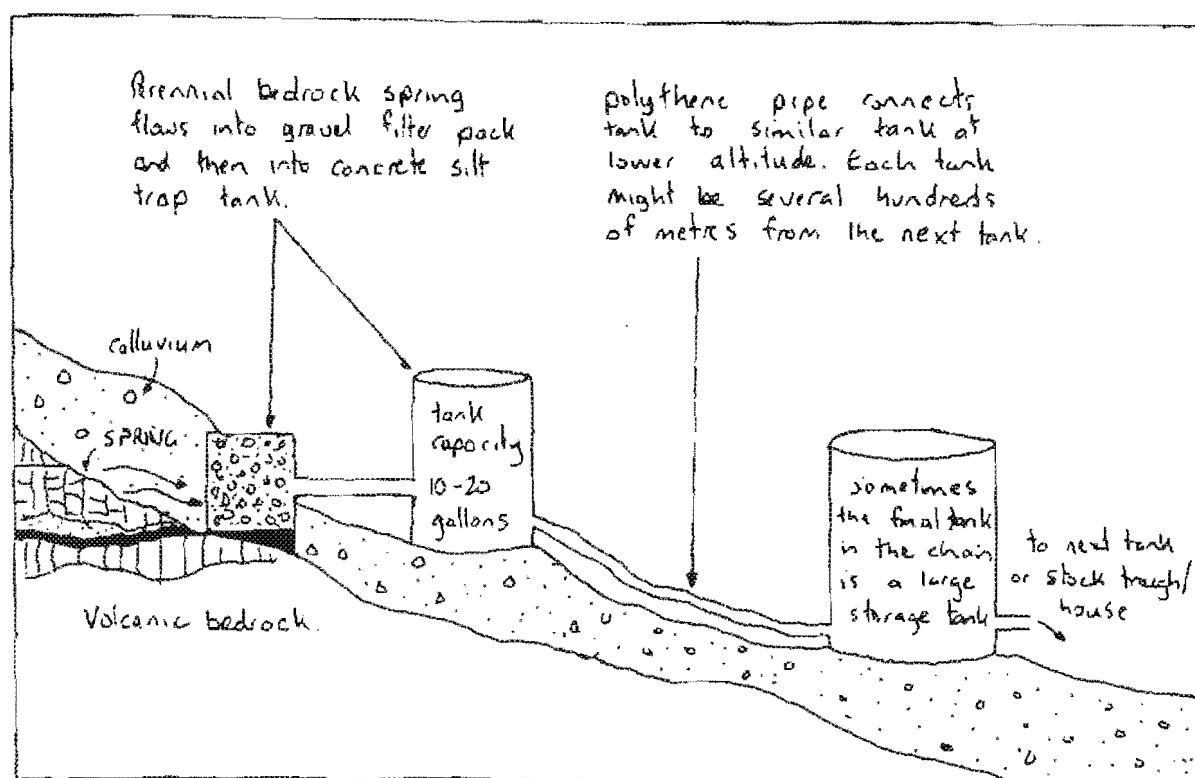 Perennial bedrock spring
flows into gravel filter pack
and then into concrete silt
trap tank.
polythene pipe connects
tank to similar tank at
lower altitude. Each tank
might be several hundreds
of metres from the next tank.
colluvium
SPRING
tank
capacity
10-20
gallons
sometimes
the final tank
in the chain
is a large
storage tank
to next tank
or stock trough/
house
Volcanic bedrock.